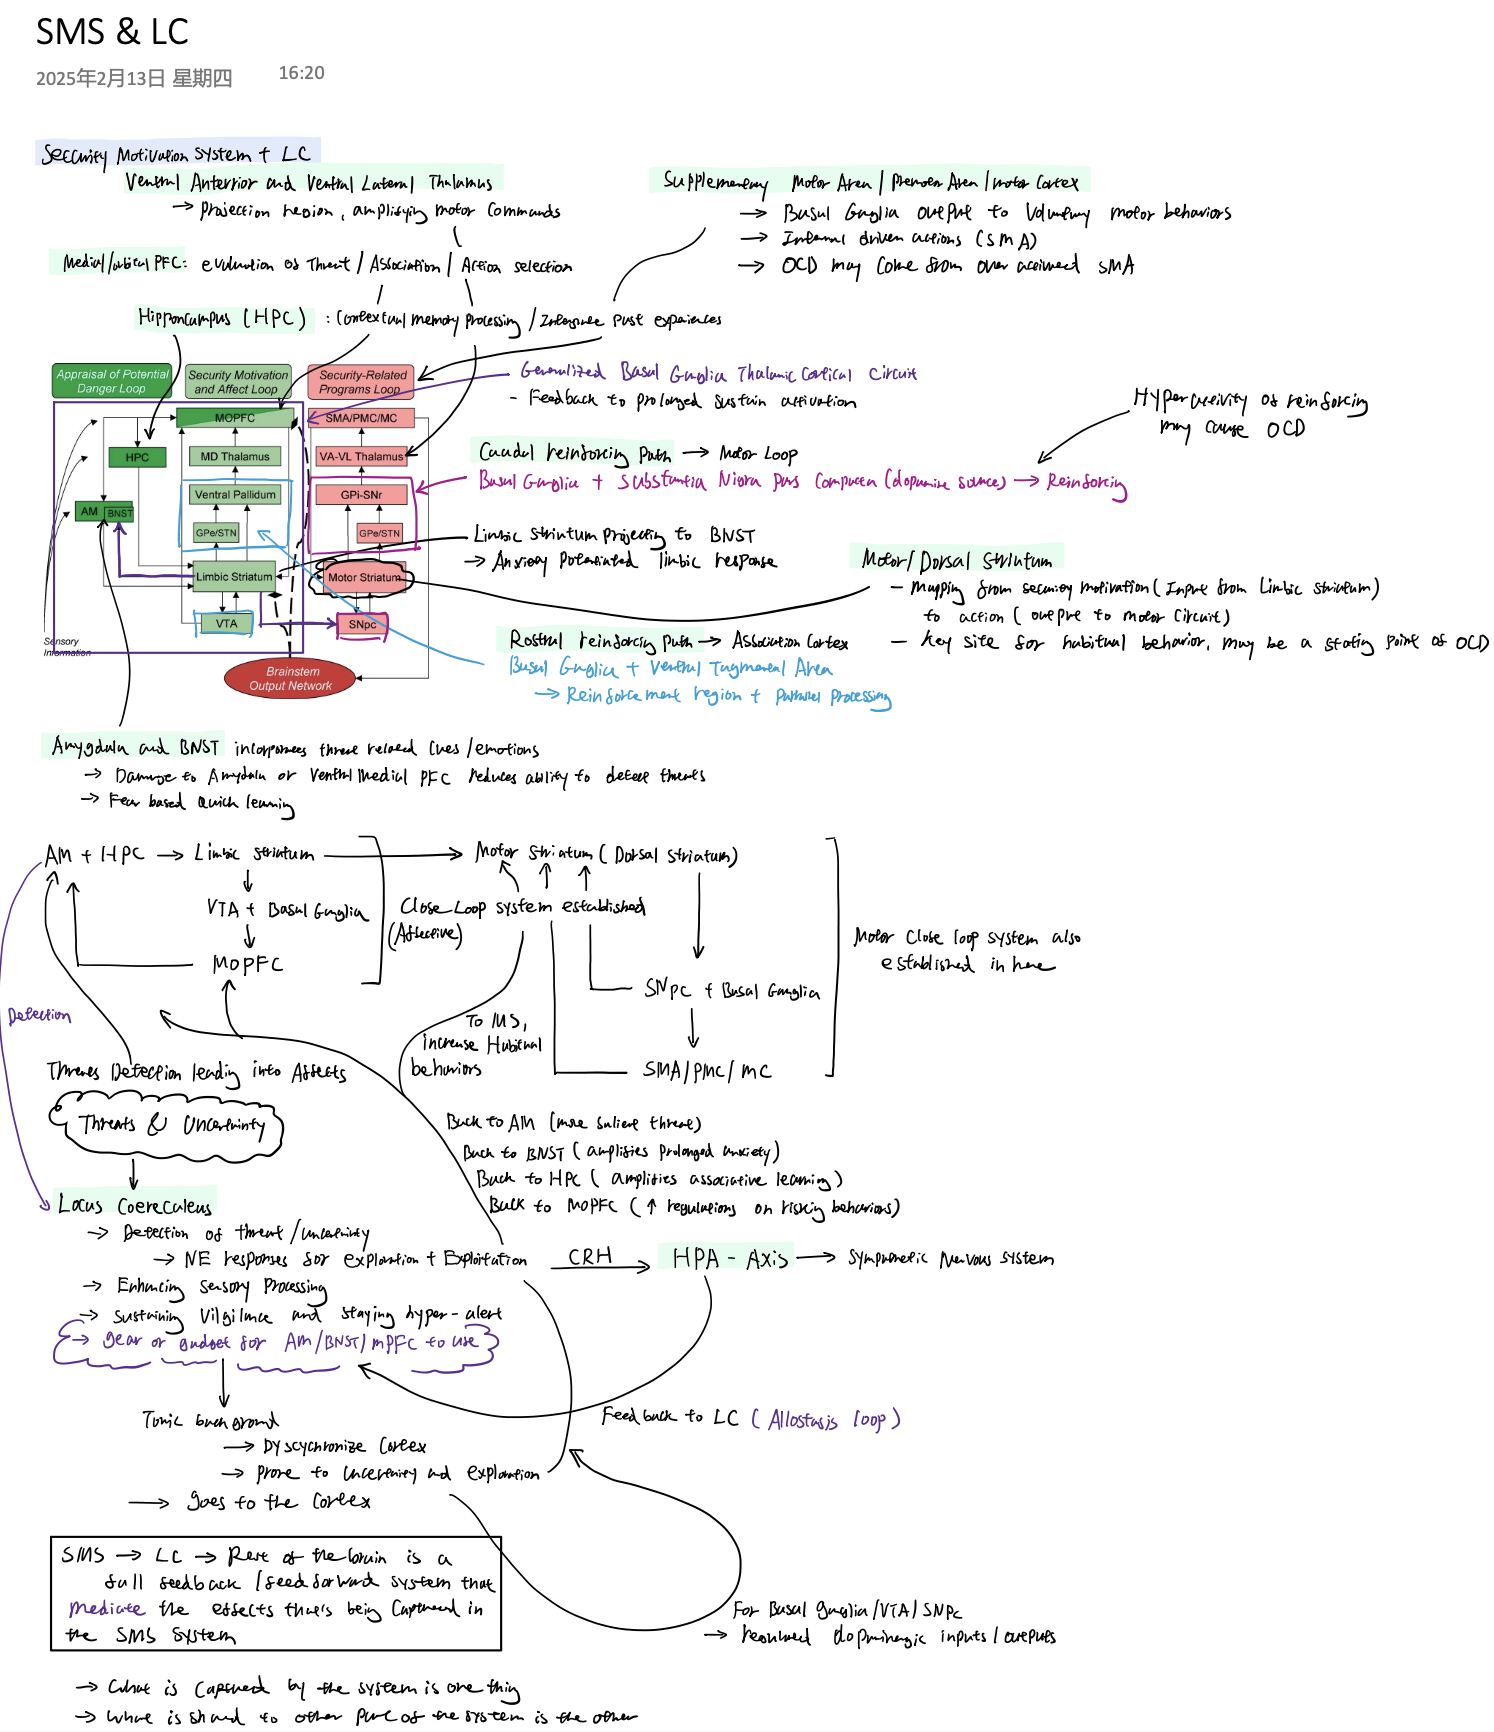 SMS & LC
2025年2月13日 星期四 16:20
Security Motivation System + LC
Ventral Anterior and Ventral Lateral Thalamus
→ Projection region, amplifying motor commands
Supplementary Motor Area / Premotor Area / motor Cortex
→ Basal Ganglia output to voluntary motor behaviors
→ Internal driven actions (SMA)
→ OCD may come from over activated SMA
Medial/orbital PFC: evaluation of Threat / Association / Action selection
Hippocampus (HPC) : Contextual memory processing / Integrate past experiences
Appraisal of Potential
Danger Loop
Security Motivation
and Affect Loop
Security-Related
Programs Loop
MOPFC
SMA/PMC/MC
HPC
MD Thalamus
VA-VL Thalamus
Ventral Pallidum
GPi-SNr
AM
BNST
GPe/STN
GPe/STN
Limbic Striatum
Motor Striatum
VTA
SNpc
Sensory
Information
Brainstem
Output Network
Generalized Basal Ganglia Thalamic Cortical Circuit
- Feedback to prolonged sustain activation
Hyperactivity of reinforcing
may cause OCD
Caudal reinforcing Path → Motor Loop
Basal Ganglia + Substantia Nigra pars Compacta (dopamine source) → Reinforcing
Limbic Striatum projecting to BNST
→ Anxiety potentiated limbic response
Motor/Dorsal Striatum
- Mapping from security motivation (Input from Limbic striatum)
to action (output to motor circuit)
- Key site for habitual behavior, may be a stating point of OCD
Rostral reinforcing path → Association Cortex
Basal Ganglia + Ventral Tagmental Area
→ Reinforcement region + Processing
Amygdala and BNST incorporates threat related cues/emotions
→ Damage to Amydala or Ventral medial PFC reduces ability to detect threats
→ Fear based quick learning
AM + HPC → Limbic Striatum → Motor Striatum (Dorsal Striatum)
VTA + Basal Ganglia
Close Loop system established
(Affective)
MOPFC
Motor close loop system also
established in here
SNpc + Basal Ganglia
Detection
To MS,
increase Habitual
behaviors
SMA/PMC/MC
Threats Detection leading into Affects
Threats & Uncertainty
Back to AM (more salient threat)
Back to BNST (amplifies prolonged anxiety)
Back to HPC (amplifies associative learning)
Back to MOPFC (↑ regulations on risking behaviors)
Locus Coereculeus
→ Detection of threat/uncertainty
→ NE responses for exploration + Exploitation
CRH
HPA - Axis → Sympathetic Nervous System
→ Enhancing sensory processing
→ Sustaining Vilgilance and staying hyper-alert
→ gear or budget for AM/BNST/mPFC to use
Feedback to LC (Allostasis loop)
Tonic background
→ Dyscychronize Cortex
→ Prone to uncertainty and exploration
→ goes to the Cortex
SMS → LC → Rest of the brain is a
full feedback / feedforward system that
mediate the effects that's being Captured in
the SMS System
For Basal ganglia/VTA/SNpc
→ dopminergic inputs / outputs
→ What is captured by the system is one thing
→ What is shared to other part of the system is the other